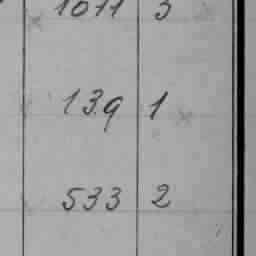 1071 3
139 1
533 2